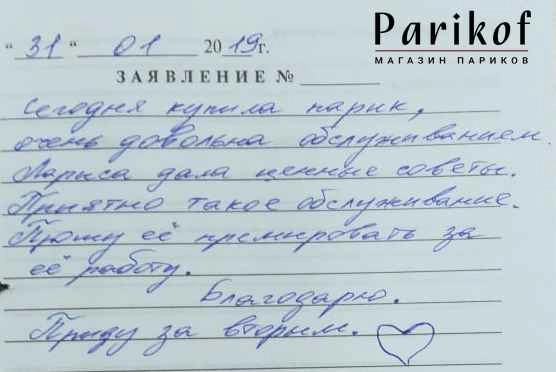 Parikof
МАГАЗИН ПАРИКОВ
“ 31 “ 01 2019г.
ЗАЯВЛЕНИЕ №
Сегодня купила парик,
очень довольна обслуживанием.
Лариса дала ценные советы.
Приятно такое обслуживание.
Прошу её премировать за
её работу.
Благодарю.
Приду за вторым.